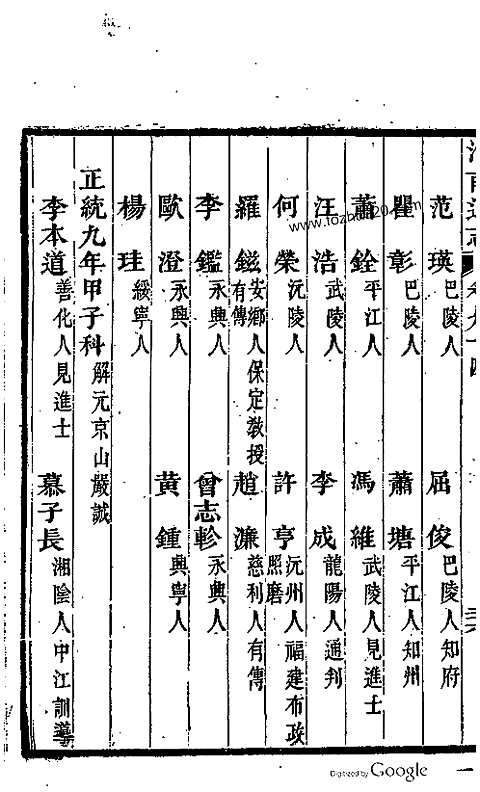 范瑛 巴陵人
屈俊 巴陵人知府
瞿彰 巴陵人
蕭塘 平江人知州
蕭銓 平江人
馮維 武陵人見進士
汪浩 武陵人
李成 龍陽人通判
何榮 沅陵人
許亨 沅州人福建布政照磨
羅鎡 安鄉人保定教授有傳
趙濂 慈利人有傳
李鑑 永興人
曾志軫 永興人
歐澄 永興人
黃鍾 興寧人
楊珪 綏寧人
正統九年甲子科 解元京山嚴誠
李本道 善化人見進士
慕子長 湘陰人中江訓導
www.
Digitized by Google